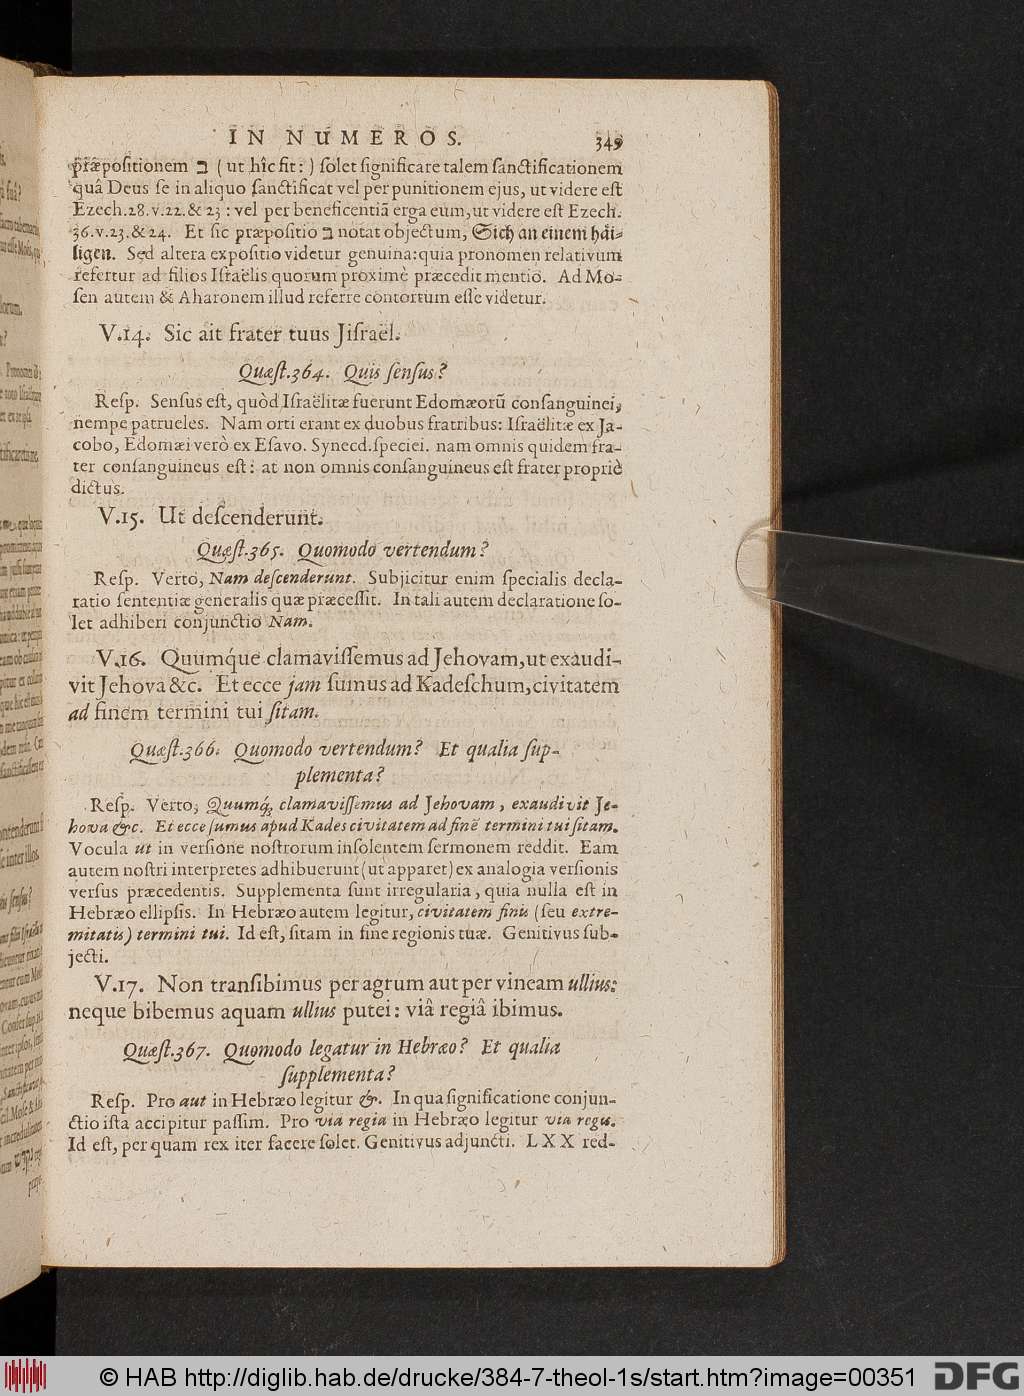 IN NUMEROS. 349
præpositionem ב ( ut hîc fit: ) ſolet ſignificare talem ſanctificationem
quâ Deus ſe in aliquo ſanctificat vel per punitionem ejus, ut videre eſt
Ezech.28.v.22.& 23 : vel per beneficentiã erga eum,ut videre eſt Ezech.
36.v.23.& 24. Et ſic præpoſitio ב notat objectum, Sich an einem häi-
ligen. Sed altera expoſitio videtur genuina:quia pronomen relativum
refertur ad filios Iſraëlis quorum proximè præcedit mentio. Ad Mo-
ſen autem & Aharonem illud referre contortum eſſe videtur.
V.14. Sic ait frater tuus Jiſraël.
Quæſt.364. Quis ſenſus?
Reſp. Senſus eſt, quòd Iſraëlitæ fuerunt Edomæorũ conſanguinei,
nempe patrueles. Nam orti erant ex duobus fratribus: Iſraëlitæ ex Ja-
cobo, Edomæi verò ex Eſavo. Synecd.ſpeciei. nam omnis quidem fra-
ter conſanguineus eſt: at non omnis conſanguineus eſt frater propriè
dictus.
V.15. Ut deſcenderunt.
Quæſt.365. Quomodo vertendum?
Reſp. Verto, Nam deſcenderunt. Subjicitur enim ſpecialis decla-
ratio ſententiæ generalis quæ præceſſit. In tali autem declaratione ſo-
let adhiberi conjunctio Nam.
V.16. Quumq́ue clamaviſſemus ad Jehovam,ut exaudi-
vit Jehova &c. Et ecce jam ſumus ad Kadeſchum,civitatem
ad finem termini tui ſitam.
Quæſt.366. Quomodo vertendum? Et qualia ſup-
plementa?
Reſp. Verto, Quumq́; clamaviſſemus ad Jehovam, exaudivit Je-
hova &c. Et ecce ſumus apud Kades civitatem ad finẽ termini tui ſitam.
Vocula ut in verſione noſtrorum inſolentem ſermonem reddit. Eam
autem noſtri interpretes adhibuerunt (ut apparet) ex analogia verſionis
verſus præcedentis. Supplementa ſunt irregularia, quia nulla eſt in
Hebræo ellipſis. In Hebræo autem legitur, civitatem finis (ſeu extre-
mitatis) termini tui. Id eſt, ſitam in fine regionis tuæ. Genitivus ſub-
jecti.
V.17. Non tranſibimus per agrum aut per vineam ullius:
neque bibemus aquam ullius putei: viâ regiâ ibimus.
Quæſt.367. Quomodo legatur in Hebræo? Et qualia
ſupplementa?
Reſp. Pro aut in Hebræo legitur &. In qua ſignificatione conjun-
ctio iſta accipitur paſſim. Pro via regia in Hebræo legitur via regis.
Id eſt, per quam rex iter facere ſolet. Genitivus adjuncti. LXX red-
© HAB http://diglib.hab.de/drucke/384-7-theol-1s/start.htm?image=00351
DFG